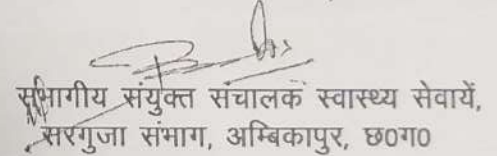 संभागीय संयुक्त संचालक स्वास्थ्य सेवायें,
सरगुजा संभाग, अम्बिकापुर, छ०ग०